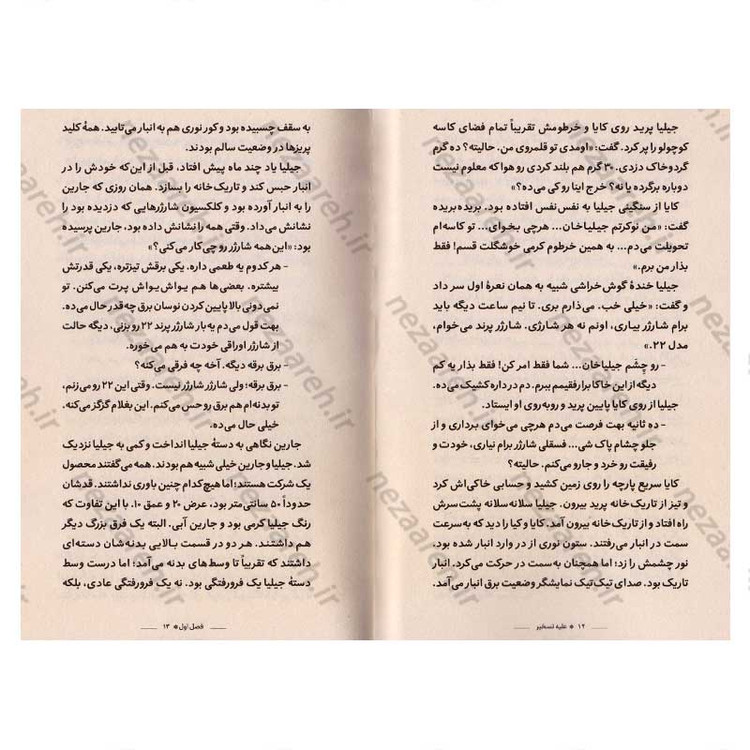 جیلیا پرید روی کایا و خرطومش تقریباً تمام فضای کاسه
کوچولو را پر کرد. گفت: «اومدی تو قلمروی من. حالیته؟ ده گرم
گردوخاک دزدی. ۳۰ گرم هم بلند کردی رو هوا که معلوم نیست
دوباره برگرده یا نه؟ خرج اینا رو کی می‌ده؟»
کایا از سنگینی جیلیا به نفس‌نفس افتاده بود. بریده‌بریده
گفت: «من نوکرتم جیلیاخان... هرچی بخوای... تو کاسه‌ام
تحویلت می‌دم... به همین خرطوم کرمی خوشگلت قسم! فقط
بذار من برم.»
جیلیا خندهٔ گوش‌خراشی شبیه به همان نعرهٔ اول سر داد
و گفت: «خیلی خب. می‌ذارم بری. تا نیم ساعت دیگه باید
برام شارژر بیاری، اونم نه هر شارژری. شارژر پرند می‌خوام،
مدل ۲۲.»
– رو چشم جیلیاخان... شما فقط امر کن! فقط بذار یه کم
دیگه از این خاکا برا رفقیمم ببرم. دم در داره کشیک می‌ده.
جیلیا از روی کایا پایین پرید و روبه‌روی او ایستاد.
– ده ثانیه بهت فرصت می‌دم هرچی می‌خوای برداری و از
جلو چشام پاک شی... فسقلی شارژر برام نیاری، خودت و
رفیقت رو خرد و جارو می‌کنم. حالیته؟
کایا سریع پارچه را روی زمین کشید و حسابی خاکی‌اش کرد
و تیز از تاریک‌خانه پرید بیرون. جیلیا سلانه‌سلانه پشت سرش
راه افتاد و از تاریک‌خانه بیرون آمد. کایا و کیا را دید که به‌سرعت
سمت در انبار می‌رفتند. ستون نوری از در وارد انبار شده بود.
نور چشمش را زد؛ اما همچنان به سمت در حرکت می‌کرد. انبار
تاریک بود. صدای تیک‌تیک نمایشگر وضعیت برق انبار می‌آمد.
۱۲ * علیه تسخیر
به سقف چسبیده بود و کورنوری هم به انبار می‌تابید. همهٔ کلید
پریزها در وضعیت سالم بودند.
جیلیا یاد چند ماه پیش افتاد، قبل از این‌که خودش را در
انبار حبس کند و تاریک‌خانه را بسازد. همان روزی که جارین
را به انبار آورده بود و کلکسیون شارژرهایی که دزدیده بود را
نشانش می‌داد. وقتی همه را نشانش داده بود، جارین پرسیده
بود: «این همه شارژر رو چی‌کار می‌کنی؟»
– هر کدوم یه طعمی داره. یکی برقش تیزتره، یکی قدرتش
بیشتره. بعضی‌ها هم یواش‌یواش پرت می‌کنن. تو
نمی‌دونی بالا پایین کردن نوسان برق چه‌قدر حال می‌ده.
بهت قول می‌دم یه بار شارژر پرند ۲۲ رو بزنی، دیگه حالت
از شارژر اوراقی خودت به هم می‌خوره.
– برق برقه دیگه. آخه چه فرقی می‌کنه؟
– برق برقه؛ ولی شارژر شارژر نیست. وقتی این ۲۲ رو می‌زنم،
تو بدنه‌ام هم برق رو حس می‌کنم. این بغلام گزگز می‌کنه.
خیلی حال می‌ده.
جارین نگاهی به دستهٔ جیلیا انداخت و کمی به جیلیا نزدیک
شد. جیلیا و جارین خیلی شبیه هم بودند. همه می‌گفتند محصول
یک شرکت هستند؛ اما هیچ‌کدام چنین باوری نداشتند. قدشان
حدوداً ۵۰ سانتی‌متر بود، عرض ۲۰ و عمق ۱۰. با این تفاوت که
رنگ جیلیا کرمی بود و جارین آبی. البته یک فرق بزرگ دیگر
هم داشتند. هر دو در قسمت بالایی بدنه‌شان دسته‌ای
داشتند که تقریباً تا وسط‌های بدنه می‌آمد؛ اما درست وسط
دستهٔ جیلیا یک فرورفتگی بود. نه یک فرورفتگی عادی، بلکه
فصل اول * ۱۳
nezaareh.ir